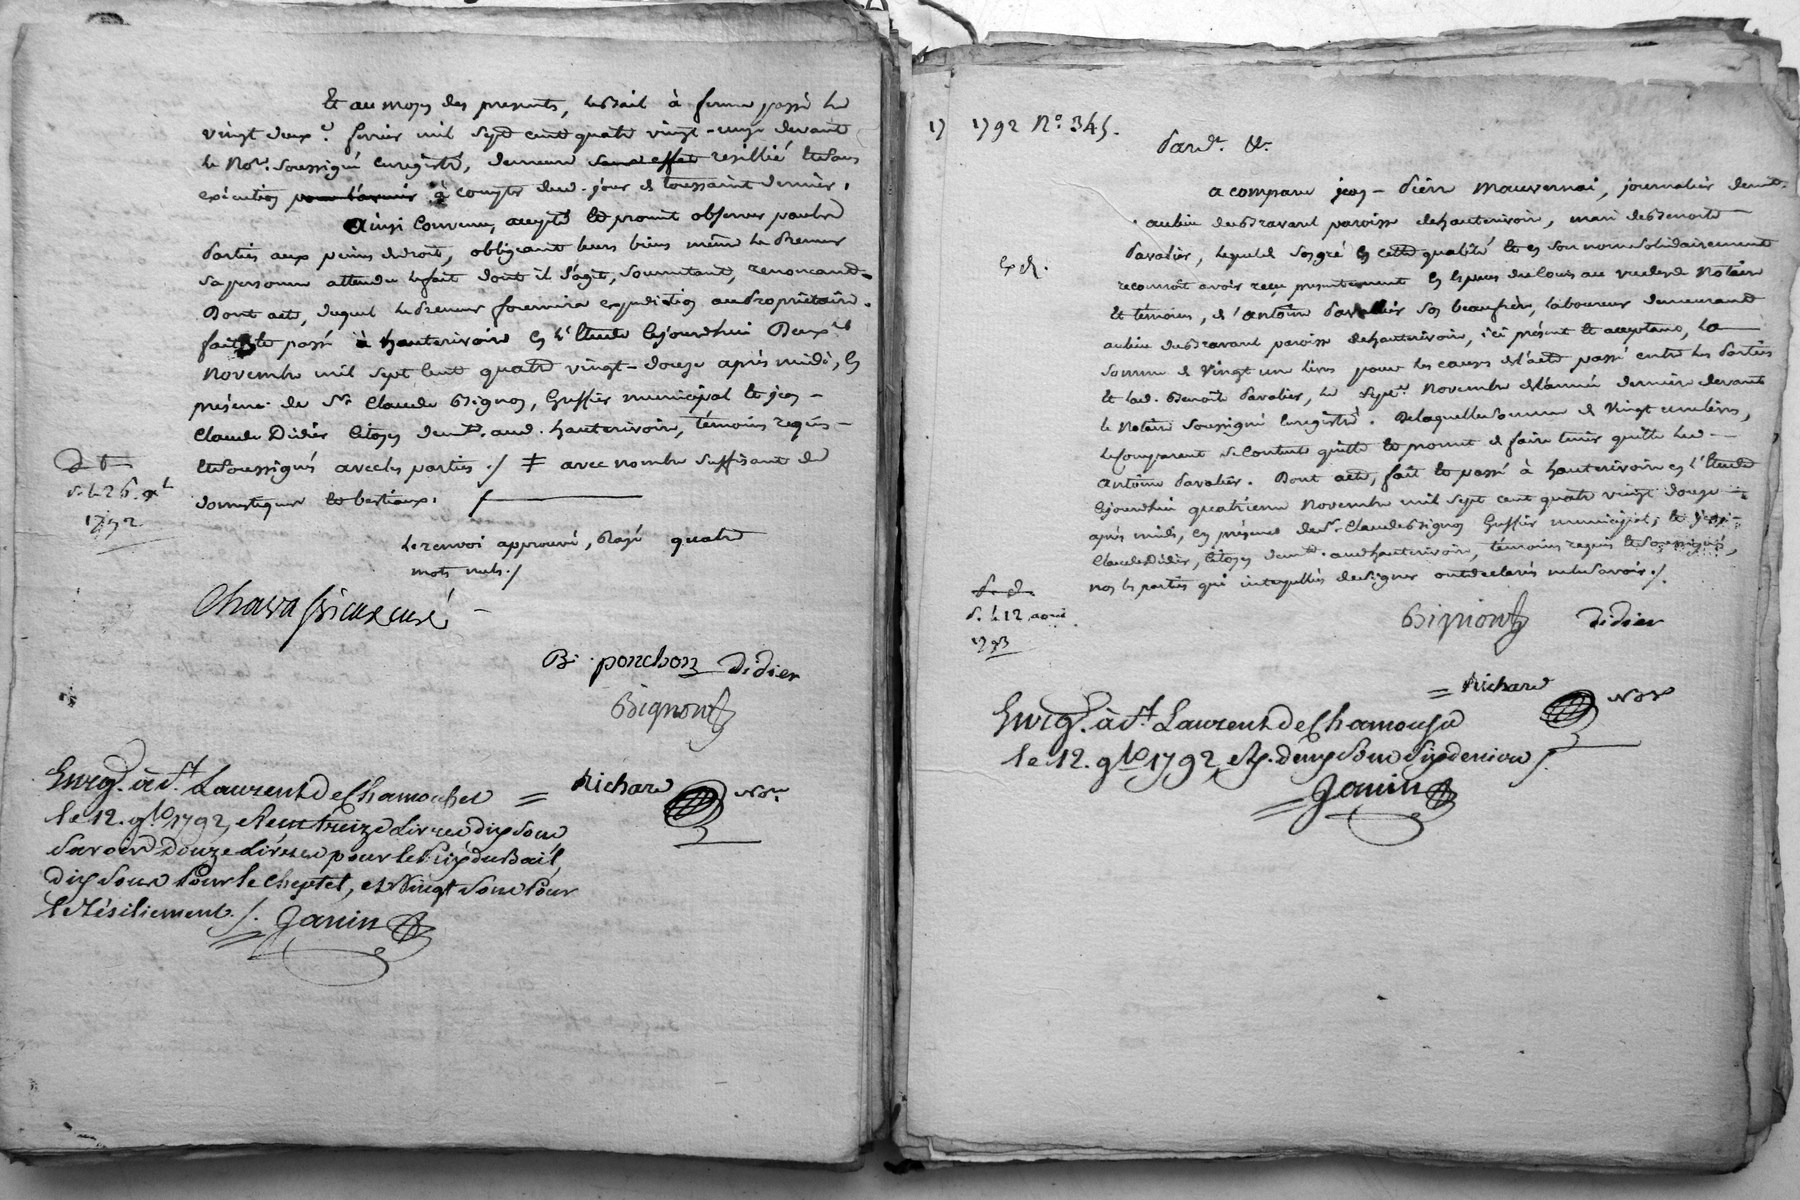 Et au moyen des presents, le Bail à ferme passé le
vingt deux fevrier mil sept cent quatre vingt-onze devant
le Nore. soussigné Enregistré, demeure sans effet resillié et sans
exécution pour l'avenir à compter dud. jour de toussaint dernier.
Ainsi Convenu, accepté et promit observer par les
Parties aux peines de droit, obligeant leurs biens même le Preneur
sa personne attendu le fait dont il s'agit, soumettant, renonçant.
Dont acte, duquel le Preneur fournira expedition au Propriétaire.
fait et passé à hauterivoire En l'Etude Cejourdhui Deux
Novembre mil sept Cent quatre vingt-douze après midi, En
présence de Sr. Claude Bignon, Greffier municipal et jean-
Claude Didier Citoyen demt. aud. hauterivoire, témoins requis
et soussignés avec les parties ./ ≠ avec nombre suffisant de
domestiques et bestiaux.
D t
d. le 26. 9bre
1792
le renvoi approuvé, Rayé quatre
mots nuls ./
Chavassieux curé
B. ponchon Didier
Bignon
Richard Nore
Enregt. à St. Laurent de Chamousset
le 12. 9bre 1792, Reçu treize Livres dix sous
Savoir Douze Livres pour le Prix du Bail,
Dix Sous Pour le Cheptel, et Vingt Sous Pour
le Résiliement ./. Janin
17 1792 No. 345.
Pardt. &c.
a comparu jean-Pierre Mauvernai, journalier demt.
au lieu du Bravant paroisse de hauterivoire, mari de Benoite
Pavalier, lequel de son gré En cette qualité et en son nom solidairement
reconnoît avoir reçu presentement En Especes du Cours au vu desd. Notaire
et témoins, d'antoine Pavalier son beaufrère, laboureur demeurant
au lieu du Bravant paroisse de hauterivoire, ici présent et acceptant, la
somme de Vingt un livres pour les causes de l'acte passé entre les Parties
et lad. Benoîte Pavalier, le sept Novembre de l'année dernière devant
le Notaire soussigné Enregistré. De laquelle somme de Vingt un livres,
le Comparant se contente quitte et promet de faire tenir quitte led.
antoine Pavalier. Dont acte, fait et passé à hauterivoire en l'Etude
Cejourdhui quatrième Novembre mil sept cent quatre vingt douze
après midi, En présence de Sr. Claude Bignon Greffier municipal, et jean-
Claude Didier, Citoyen demt. aud hauterivoire, témoins requis et soussignés,
non les parties qui interpellées de signer ont declaré ne le savoir ./.
Ex.
d. le 12 aout
1793
Bignon Didier
Richard Nore
Enregt. à St. Laurent de Chamousset
le 12. 9bre 1792, R. deux sous six deniers ./.
Janin